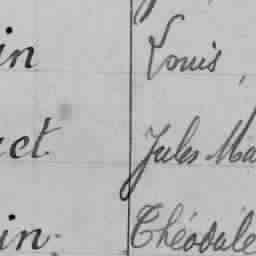 in Louis,
ct Jules Ma
in. Théodule